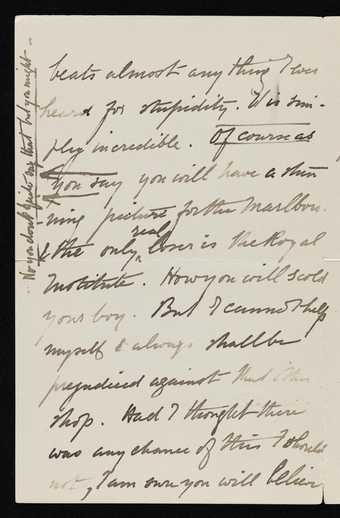 beats almost any thing I ever
heard for stupidity. It is sim-
ply incredible. Of course as
you say you will have a stun
ning picture for the Marlbou.
& the only real loser is the Royal
Institute. Now you will scold
your boy. But I cannot help
myself & always shall be
prejudiced against that other
shop. Had I thought there
was any chance of this I should
not, I am sure you will believe
No you don't quite say that but you might